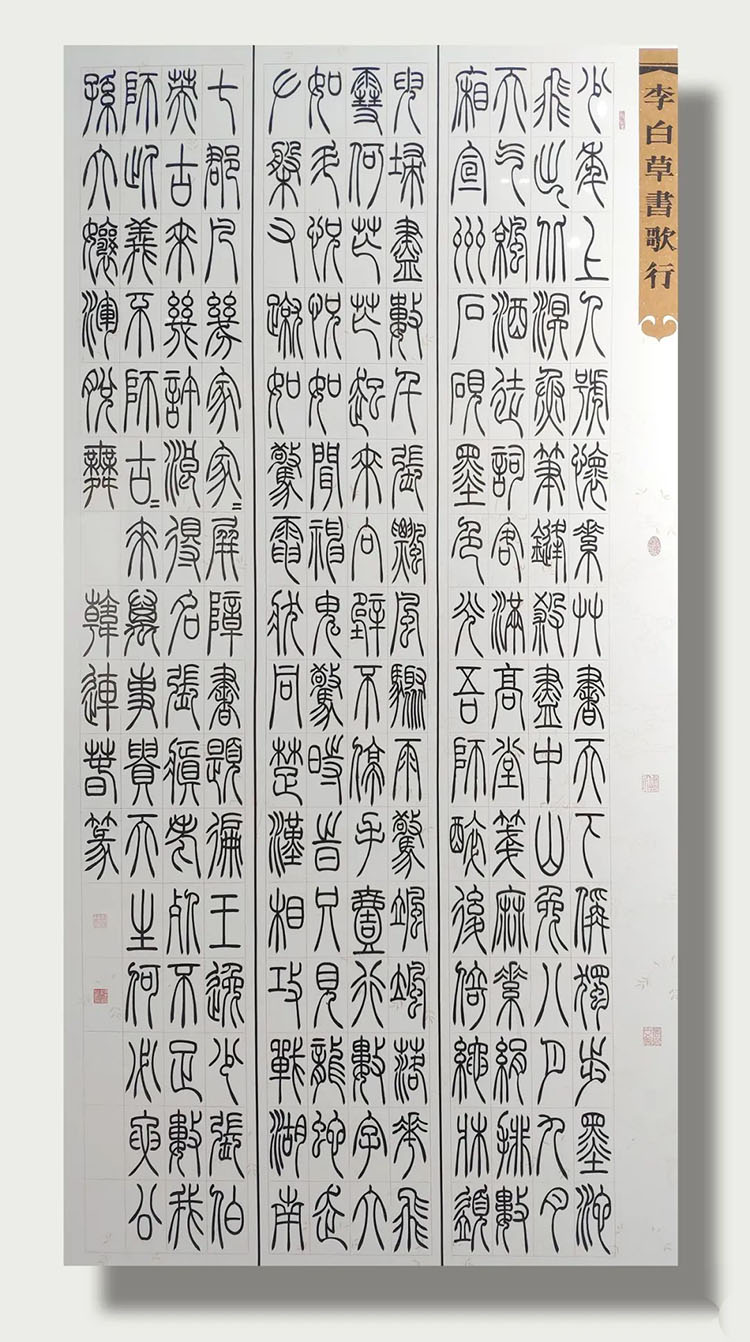 李白草書歌行
少年上人號懷素艸書天下偁獨步墨池
飛出北溟魚筆鋒殺盡中山兔八月九月
天气涼酒徒詞客滿高堂箋麻素絹排數
廂宣州石硯墨色光吾師醉後倚繩牀須
臾掃盡數千張飄風驟雨驚颯颯落花飛
雪何茫茫起來向壁不停手壹行數字大
如斗怳怳如聞神鬼驚時旹只見龍蛇走
左盤右蹴如驚電狀同楚漢相攻戰湖南
七郡凡幾家家=屏障書題徧王逸少張伯
英古來幾許浪得名張顛老死不足數我
師此義不師古=來萬事貴天生何必要公
孫大孃渾脫舞 韓連春篆